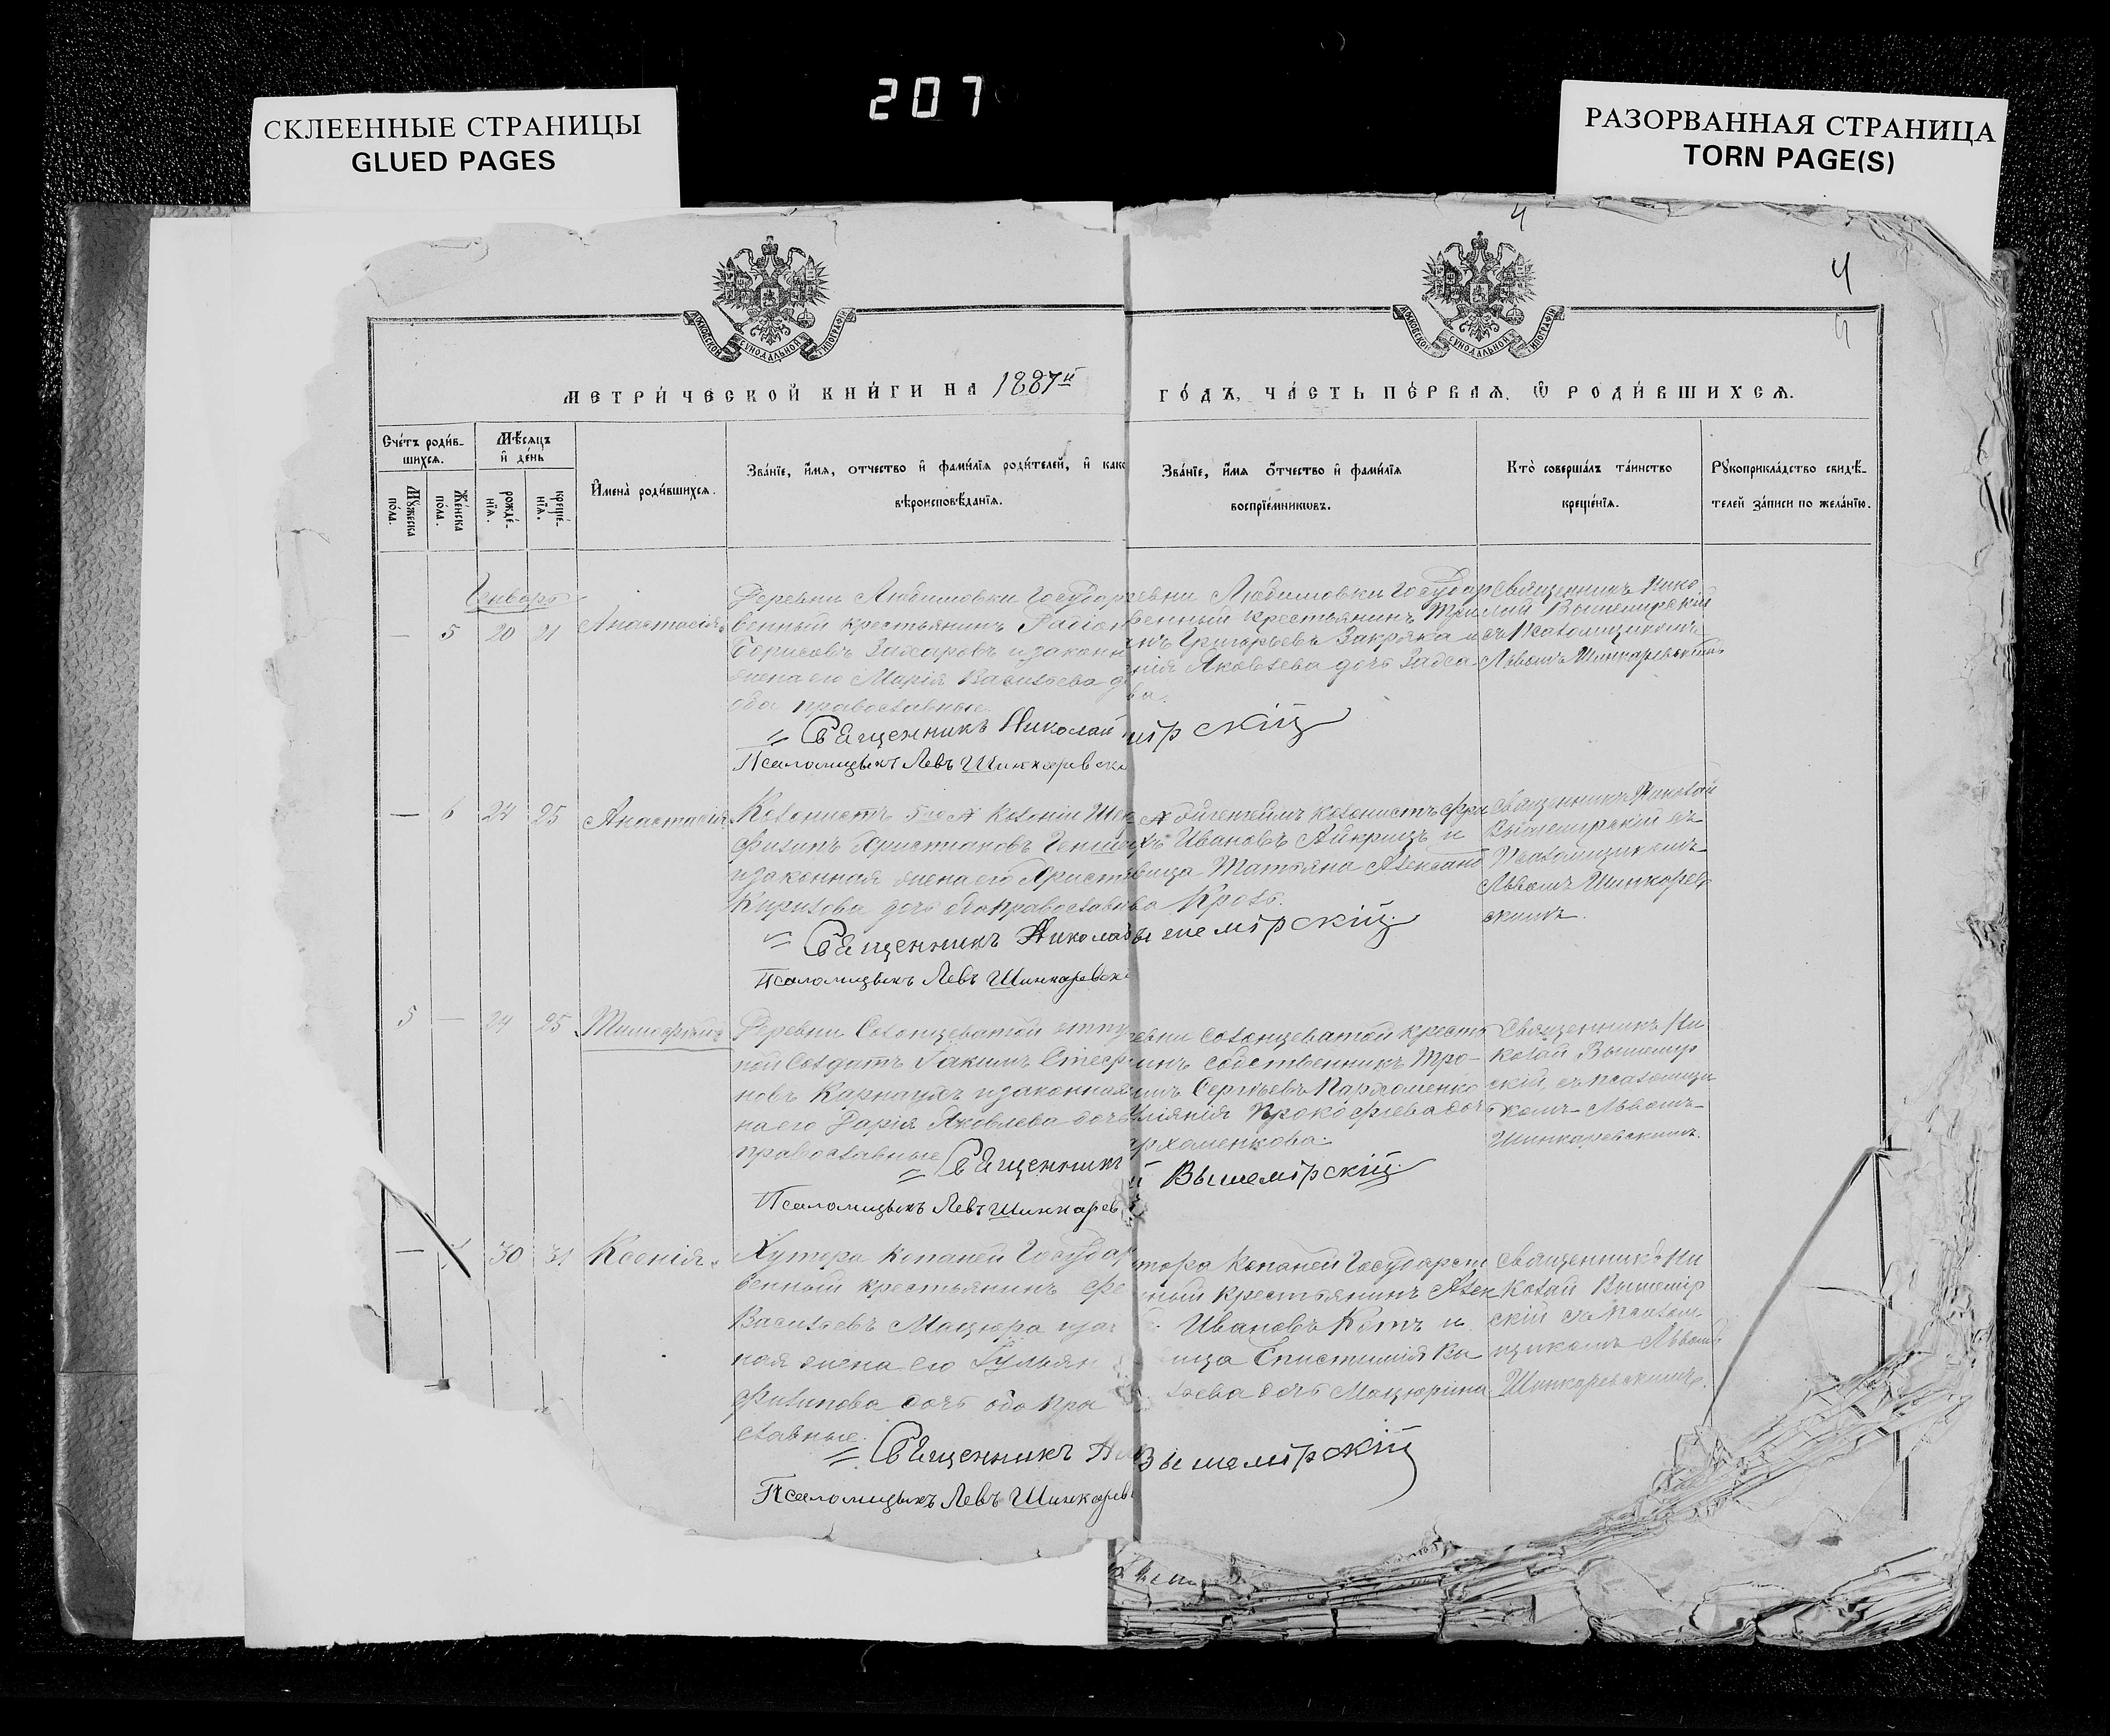 207
СКЛЕЕННЫЕ СТРАНИЦЫ
GLUED PAGES
РАЗОРВАННАЯ СТРАНИЦА
TORN PAGE(S)
4
4
МОСКОВСКОЙ СѴНОДАЛЬНОЙ ТИПОГРАФІИ
МОСКОВСКОЙ СѴНОДАЛЬНОЙ ТИПОГРАФІИ
МЕТРИ́ЧЕСКОЙ КНИ́ГИ НА 1887й
ГО́ДЪ, ЧА́СТЬ ПЕ́РВАЯ, Ѿ РОДИ́ВШИХСЯ.
Сче́тъ роди́в-
шихся.
Мѣ́сяцъ
и̂ де́нь
Мꙋ́жеска по́ла.
Же́нска по́ла.
рожде́-нїя.
креще́-нїя.
И̂мена̀ роди́вшихся.
Зва́нїе, и̂́мя, о́тчество и̂ фами́лїя роди́телей, и̂ како
вѣроисповѣ́данїя.
Зва́нїе, и̂́мя о́тчество и̂ фами́лїя
воспрїе́мникѡвъ.
Кто̀ соверша́лъ та́инство
креще́нїя.
Рꙋкоприкла́дство свидѣ́-
телей за́писи по жела́нїю.
Генварь
— 5 20 21 Анастасія
Деревни Любимовки Государ
венный крестьянинъ Радіон
Борисовъ Захаровъ и законн
жена его Марія Васильева д
оба православные.
Священникъ Николай
Псаломщикъ Левъ Шинкаревск
евни Любимовки Государ
венный крестьянинъ
Григорьевъ
нія Яковлева дочь
ва.
мірскій
Священникъ Нико
лай Вышемірскій
съ Псаломщикомъ
Львомъ Шинкаревскимъ
— 6 24 25 Анастасія
Колонистъ 5го № колоніи
Филипъ Христіановъ
и законная жена его Христ
Кирилова дочь оба православн
Священникъ Николай
Псаломщикъ Левъ Шинкаревск
колонистъ Фри
хъ Ивановъ и
вица Татьяна Александ
ва Кроль.
Вышемірскій
Священникъ Николай
Вышемірскій съ
Псаломщикомъ
Львомъ Шинкарев
скимъ.
5 — 24 25 Тимофей
Деревни Солонцеватой отпу
ной Солдатъ Іакимъ Стеф
новъ Карнаухъ и законная
на его Дарія Яковлева дочь
православные
Священникъ
Псаломщикъ Левъ Шинкарев
евни Солонцеватой кресть
инъ собственникъ Тро-
имъ Сергѣевъ Пархоменко
Прокофіева дочь
архоменкова.
й Вышемірскій
Священникъ Ни
колай Вышемір
скій съ псаломщи
комъ Львомъ
Шинкаревскимъ.
— 30 31 Ксенія
Хутора Копаней Государ
венный крестьянинъ Фе
Васильевъ Мацюра и зак
ная жена его Іульян
Филипова дочь оба пра
славные.
Священникъ Ни
Псаломщикъ Левъ Шинкарев
тора Копаней Государст
ный крестьянинъ Алек
Ивановъ Котъ и
ица Епистимія Ва
льева дочь Мацюрина
Вышемірскій
Священникъ Ни
колай Вышемір
скій съ псалом
щикомъ Львомъ
Шинкаревскимъ.